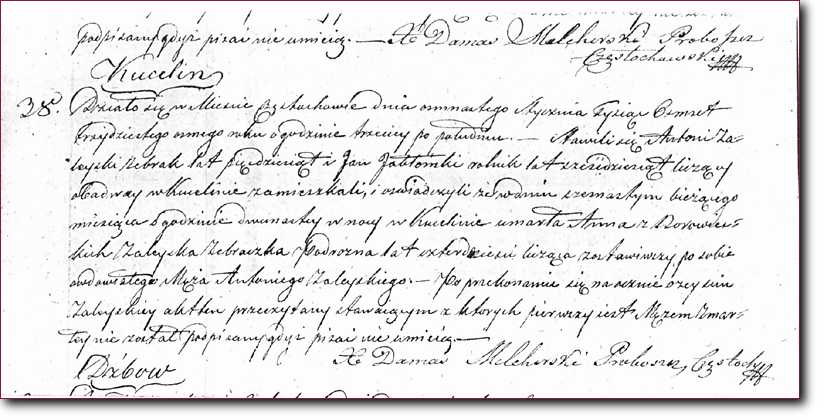 podpisany gdyż pisać nie umieią. — X Damas Melcherski Proboszcz
Częstochowski
Kucelin
38. Działo się w Mieście Częstochowie dnia osmnastego Stycznia Tysiąc Osmset
trzydziestego osmego roku o godzinie trzeciey po południu. — Stawili się Antoni Za-
leyski Żebrak lat pięćdziesiąt i Jan Jabłonski rolnik lat sześćdziesiąt liczący
obadway w Kucelinie zamieszkali, i oswiadczyli że w dniu szesnastym bieżącego
miesiąca o godzinie dwunastey w nocy w Kucelinie umarła Anna z Borowiec-
kich Zaleyska Żebraczka Podrozna lat czterdzieści licząca zostawiwszy po sobie
owdowiałego Męża Antoniego Zaleyskiego. — Po przekonaniu się naocznie o zeyściu
Zaleyskiey akt ten przeczytany stawaiącym z ktorych pierwszy iest Mężem Zmar-
łey nie został podpisany gdyż pisać nie umieią. —
X Damas Melcherski Proboszcz Częstoch
Dźbow